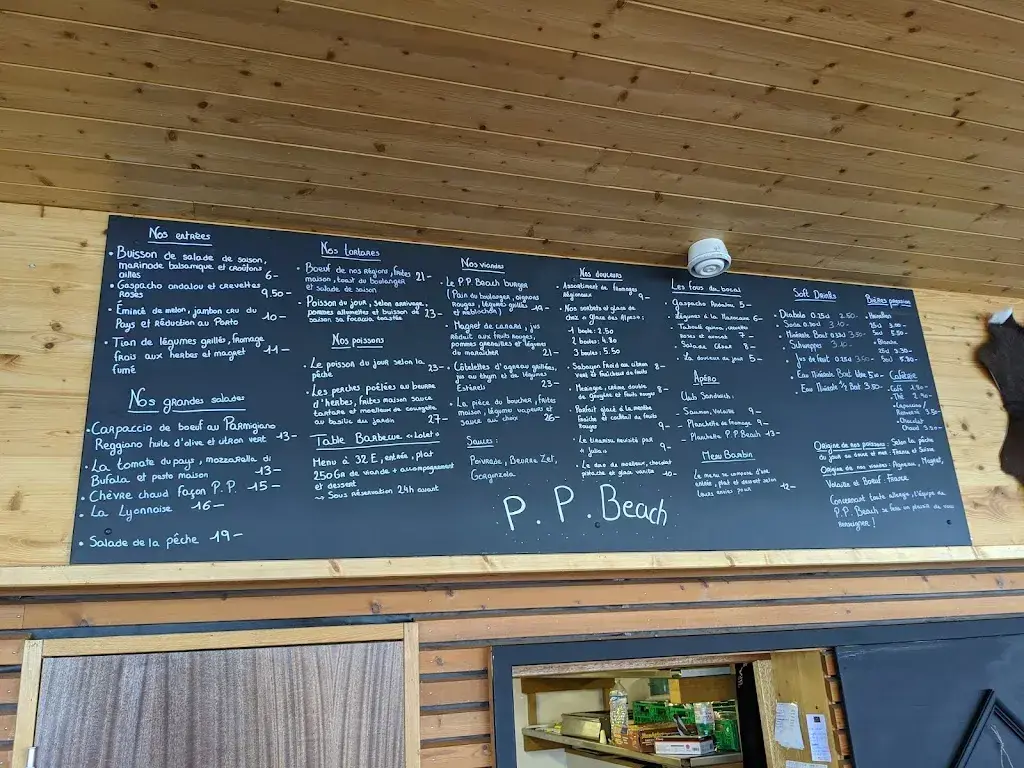 Nos entrées
• Buisson de salade de saison,
marinade balsamique et croûtons
aillés 6-
• Gaspacho andalou et crevettes
Roses 9.50-
• Emincé de melon, jambon cru du
Pays et réduction au Porto 10-
• Tian de légumes grillés, fromage
frais aux herbes et magret 11-
fumé
Nos grandes salades
• Carpaccio de boeuf au Parmigiano
Reggiano huile d'olive et citron vert 13-
• La tomate du pays, mozzarella di
Bufala et pesto maison 13-
• Chèvre chaud façon P.P. 15-
• La Lyonnaise 16-
• Salade de la pêche 19-
Nos tartares
• Boeuf de nos régions, frites 21-
maison, toast du boulanger
et salade de saison
• Poisson du jour, selon arrivage,
pommes allumettes et buisson de 23-
saison sa focaccia toastée
Nos poissons
• Le poisson du jour selon la 23-
pêche
• Les perches poêlées au beurre
d'herbes, frites maison sauce
tartare et moelleux de courgette
au basilic du jardin 27-
Table Barbecue "Lolot"
Menu à 32 E, entrée, plat
250 Gr de viande + accompagnement
et dessert
~ Sous réservation 24h avant
Nos viandes
• Le P.P. Beach burger
(Pain du boulanger, oignons
Rouges, légumes grillés 19-
et reblochon)
• Magret de canard, jus
Réduit aux fruits rouges,
pommes grenailles et légumes
du maraicher 21-
• Côtelettes d'agneau grillées,
jus au thym et de légumes
23-
• La pièce du boucher, frites
maison, légumes vapeurs et
sauce au choix 26-
Sauces :
Poivrade, Beurre Zef,
Gorgonzola.
Nos douceurs
• Assortiment de fromages
Régionaux 9-
• Nos sorbets et glaces de
chez "glaces des Alpes":
1 boule: 2.50
2 boules: 4.80
3 boules: 5.50
• Sabayon froid au citron
vert et fraicheur de fruits 8-
• Meringue, crème double
de gruyère et fruits rouges 8-
• Parfait glacé à la menthe
fraiche et cocktail de fruits
Rouges 9-
• Le tiramisu revisité par
"Julia" 9-
• Le duo de moelleux, chocolat
pistache et glace vanille 10-
P.P. Beach
Les fous du bocal
• Gaspacho Andalou 5-
• Légumes à la Marocaine 6-
• Taboulé quinoa, crevettes
roses et avocat 7-
• Salade César 8-
• La douceur du jour 5-
Apéro
Club Sandwich:
- Saumon, Volaille 9-
- Planchette de fromage 9-
- Planchette P.P Beach 13-
Menu Bambin
Le menu se compose d'une
entrée, plat et dessert selon
leurs envies pour 12-
Soft Drinks
• Diabolo 0.25cl 2.50-
• Soda 0.33cl 3.50-
• Minérale Bout 0.33cl 3.50-
• Schweppes 3.50-
• Jus de fruit 0.25cl 3.50-
• Eau Minérale Bout Verre 5.00-
• Eau Minérale 1/2 Bout 3.50-
Bières pression
25cl 3.00-
50cl 5.50-
• Blanche
25cl 3.50-
50cl 5.90-
Caféterie
• Café 1.50-
• Thé 2.50-
• Capuccino /
Renversé 3.50-
• Chocolat
Chaud 3.50-
Origine de nos poissons : Selon la pêche
du jour ou Suisse et mer : France ou Suisse
Origine de nos viandes : Agneau, Magret,
Volaille et Boeuf France
Concernant toute allergie, l'équipe de
P.P. Beach se fera un plaisir de vous
renseigner !